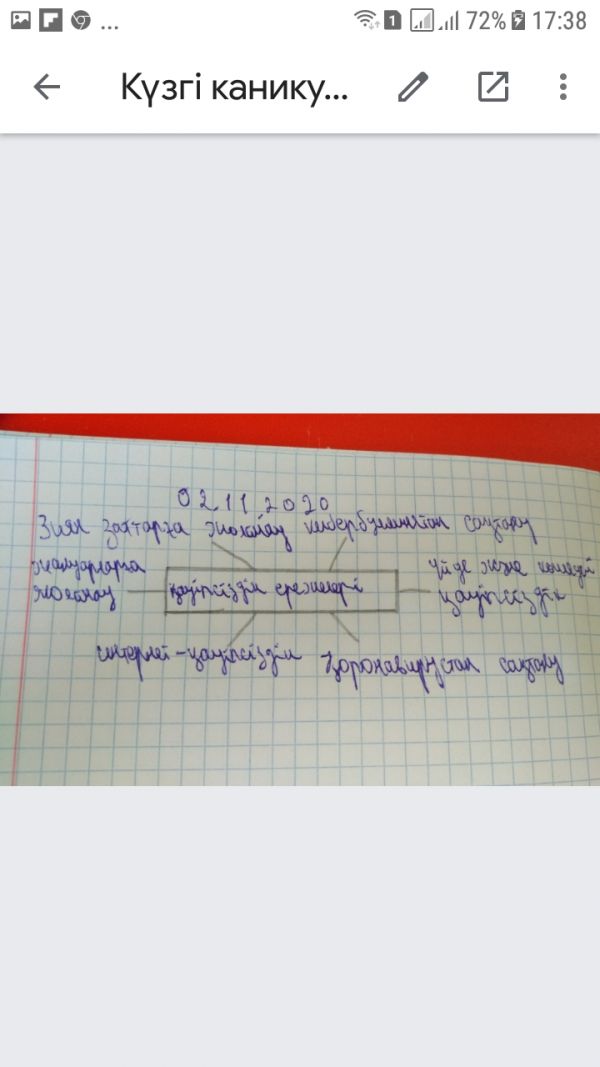 ... 1 72% 17:38
Күзгі канику...
02.11.2020
Зиян заттарға жолатпау кибербуллингтан сақтану
жануарларға
жоламау
қауіпсіздік ережелері
үйде және көшеде
қауіпсіздік
интернет-қауіпсіздік
қоронавирустан сақтану